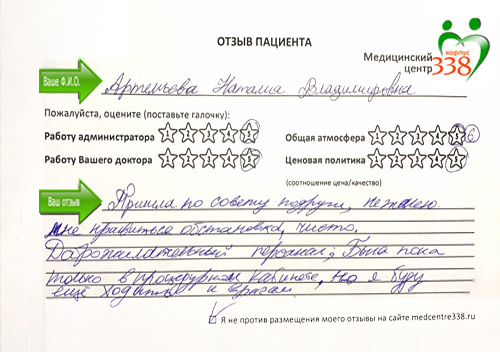 ОТЗЫВ ПАЦИЕНТА
корпус
Медицинский
центр 338
Ваше Ф.И.О.
Артемьева Наталия Владимировна
Пожалуйста, оцените (поставьте галочку):
Работу администратора 1 2 3 4 5
Общая атмосфера 1 2 3 4 5 6
Работу Вашего доктора 1 2 3 4 5
Ценовая политика 1 2 3 4 5
(соотношение цена/качество)
Ваш отзыв
Пришла по совету подруги, не жалею.
Мне нравиться обстановка, чисто.
Доброжелательный персонал; Была пока
только в процедурном кабинете, но я буду
ещё ходить и к врачам
Я не против размещения моего отзывы на сайте medcentre338.ru